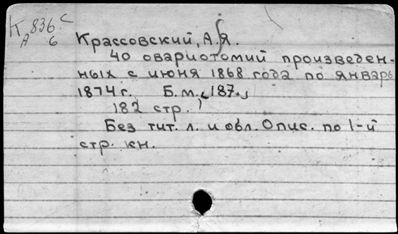 К 836 с
А 6
Крассовский, А.Я.
40 овариотомий произведен-
ных с июня 1868 года по январь
1874 г. Б.м., 187.
182 стр.
Без тит. л. и обл. Опис. по 1-й
стр. кн.